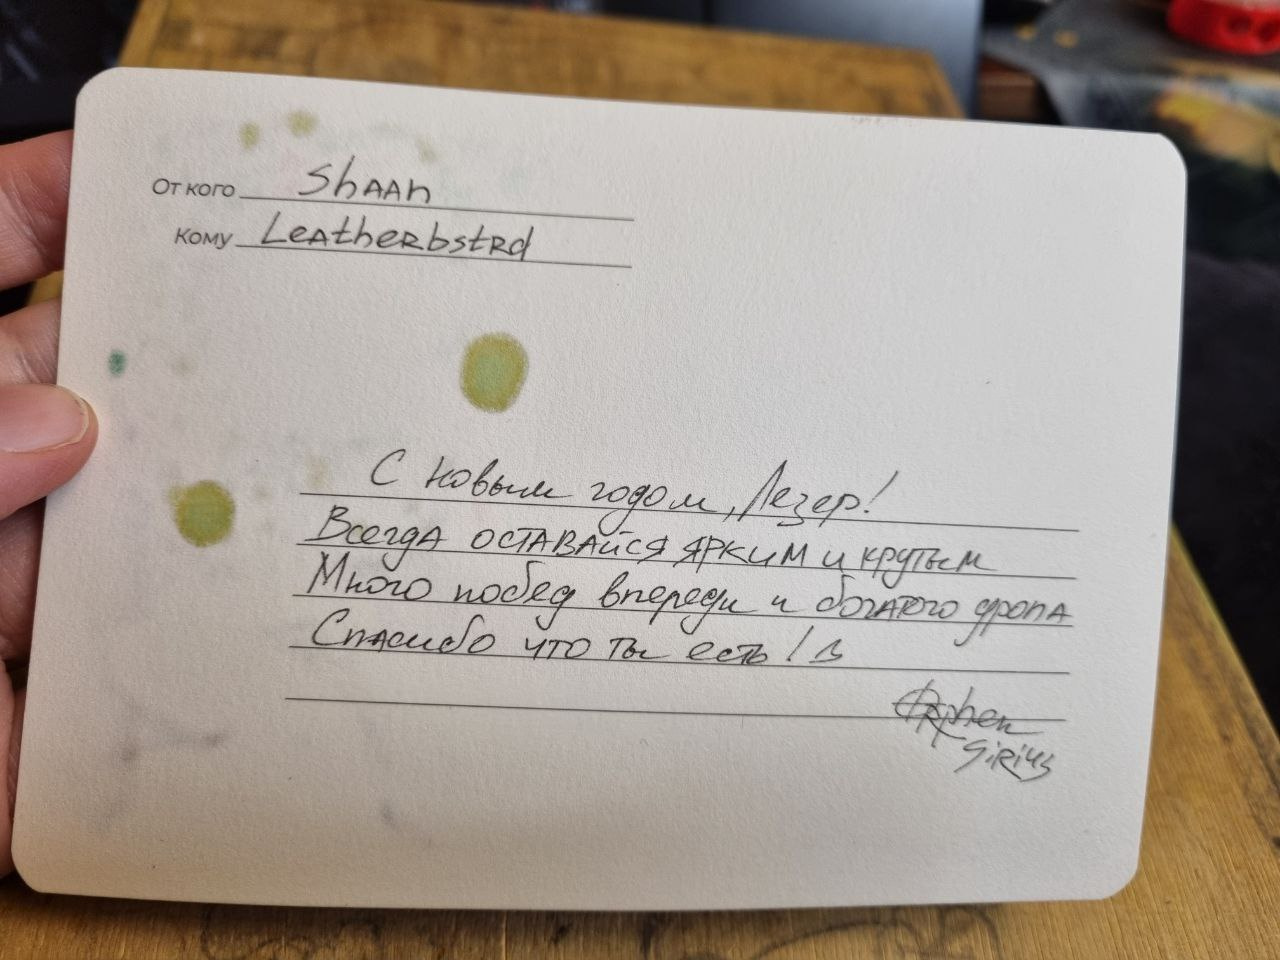 От кого Shaan
Кому Leatherbstrd
С новым годом, Лезер!
Всегда оставайся ярким и крутым
Много побед впереди и богатого дропа
Спасибо что ты есть!
Orphen
Sirius